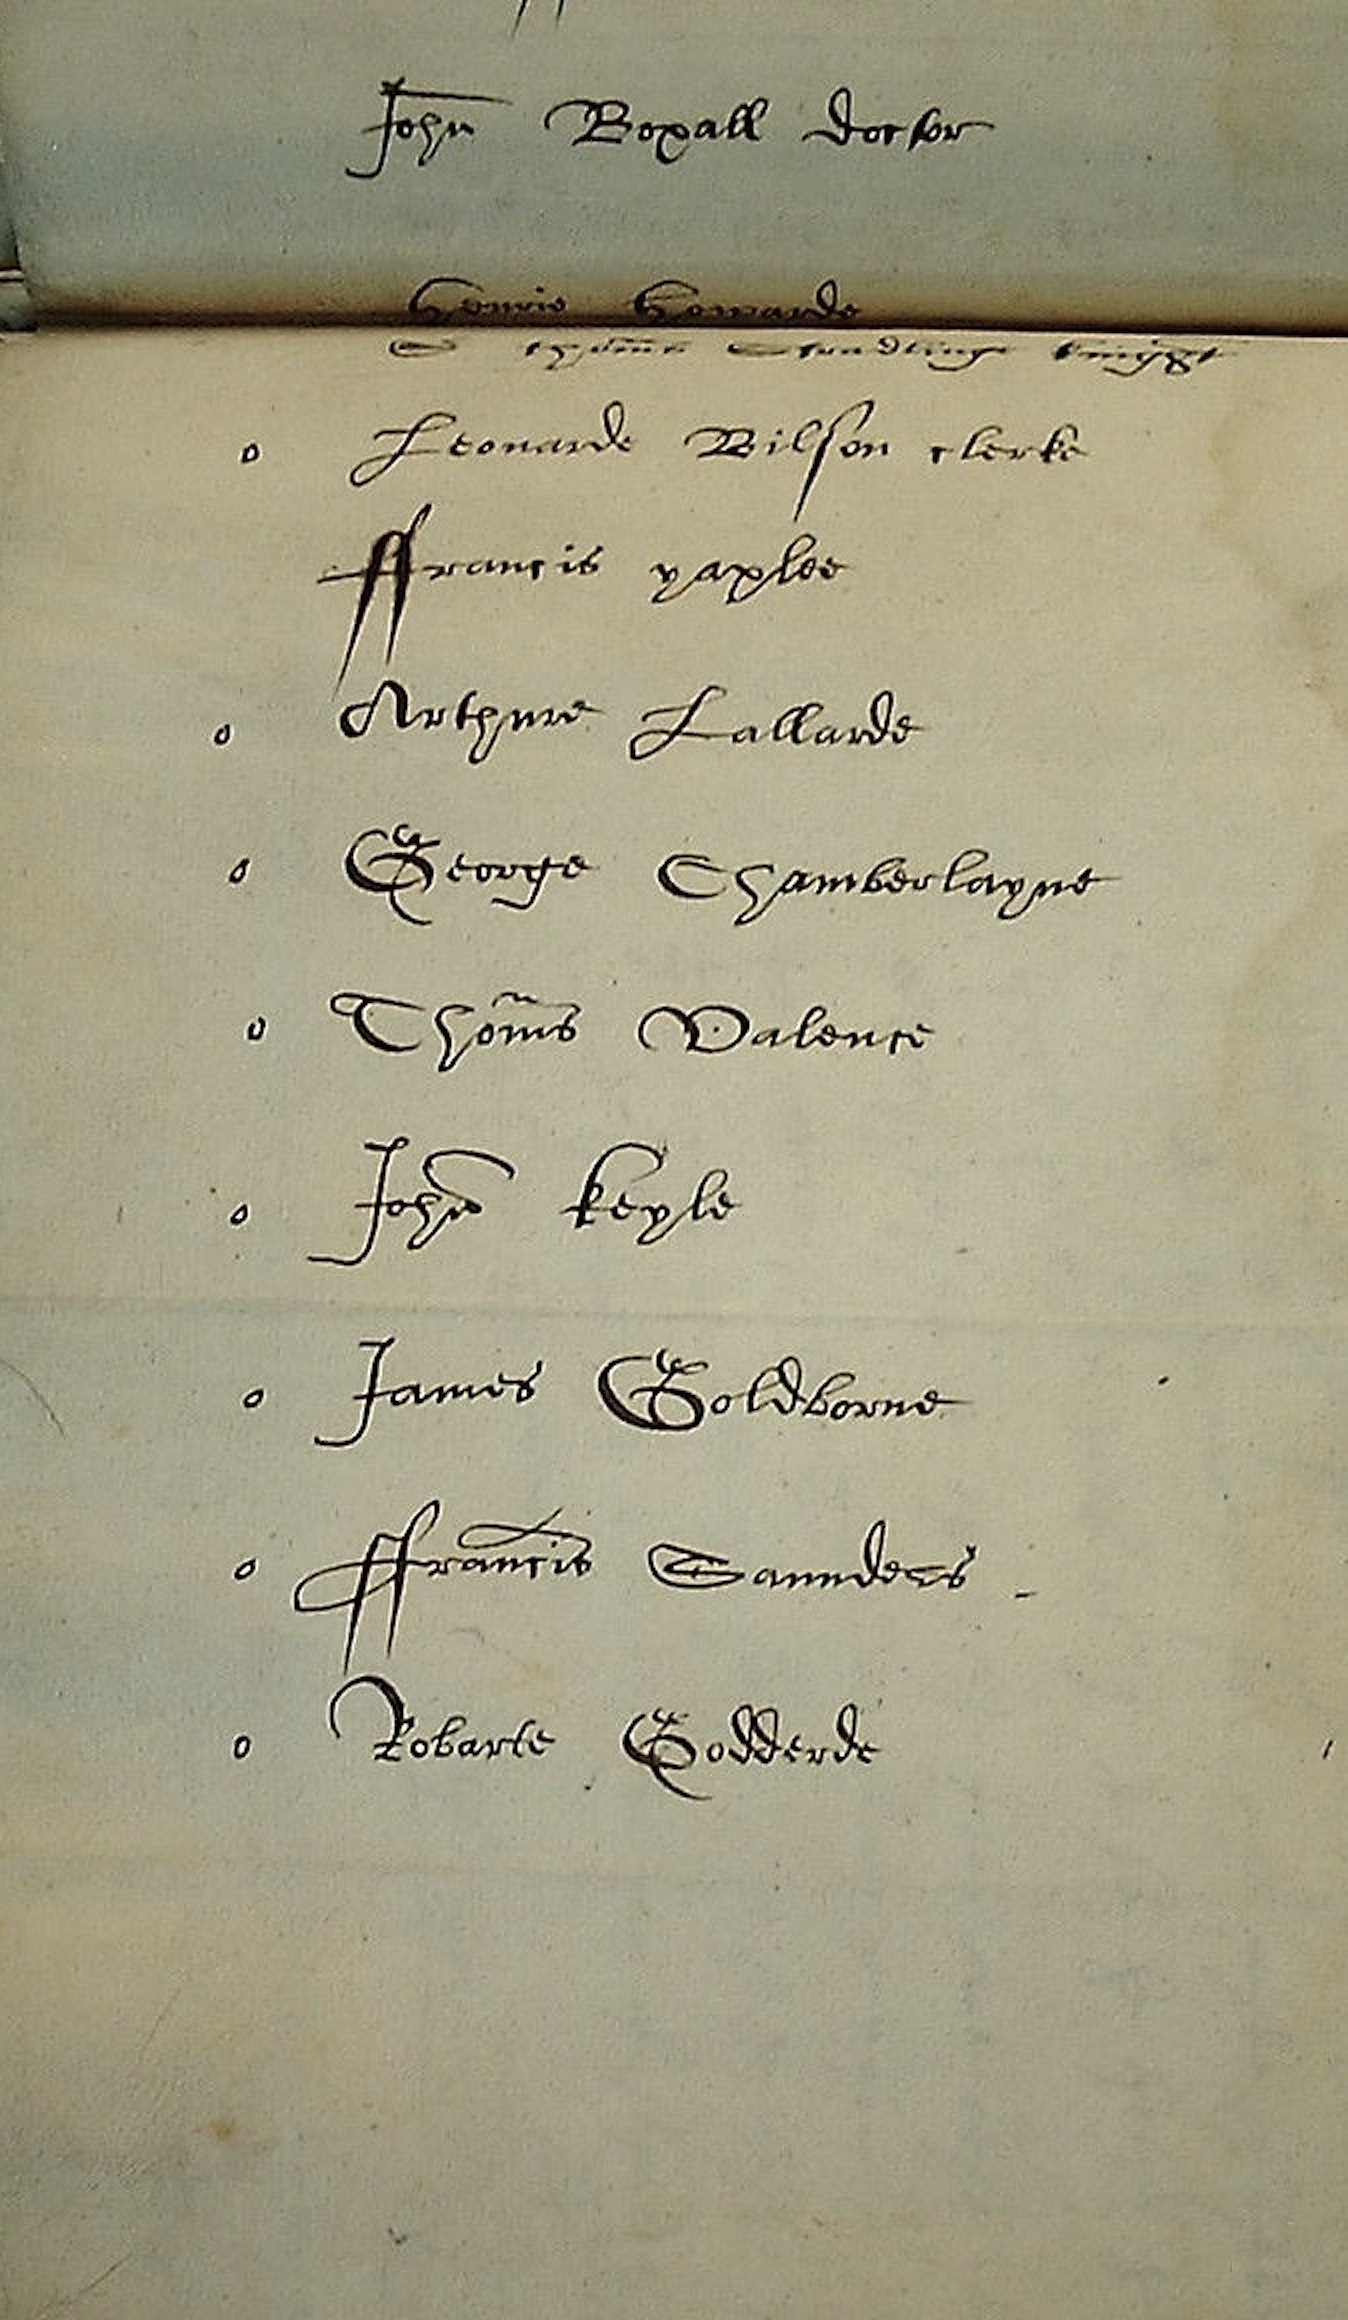 John Boxall doctor
Henrie Howarde
Stradlinge knight
o Leonarde Bilson clerke
ffrancis yaxlee
o Arthure Lallarde
o George Chamberlayne
o Thoms Valence
o John keyle
o James Goldborne
o ffrancis Saunders
o Robarte Godderde